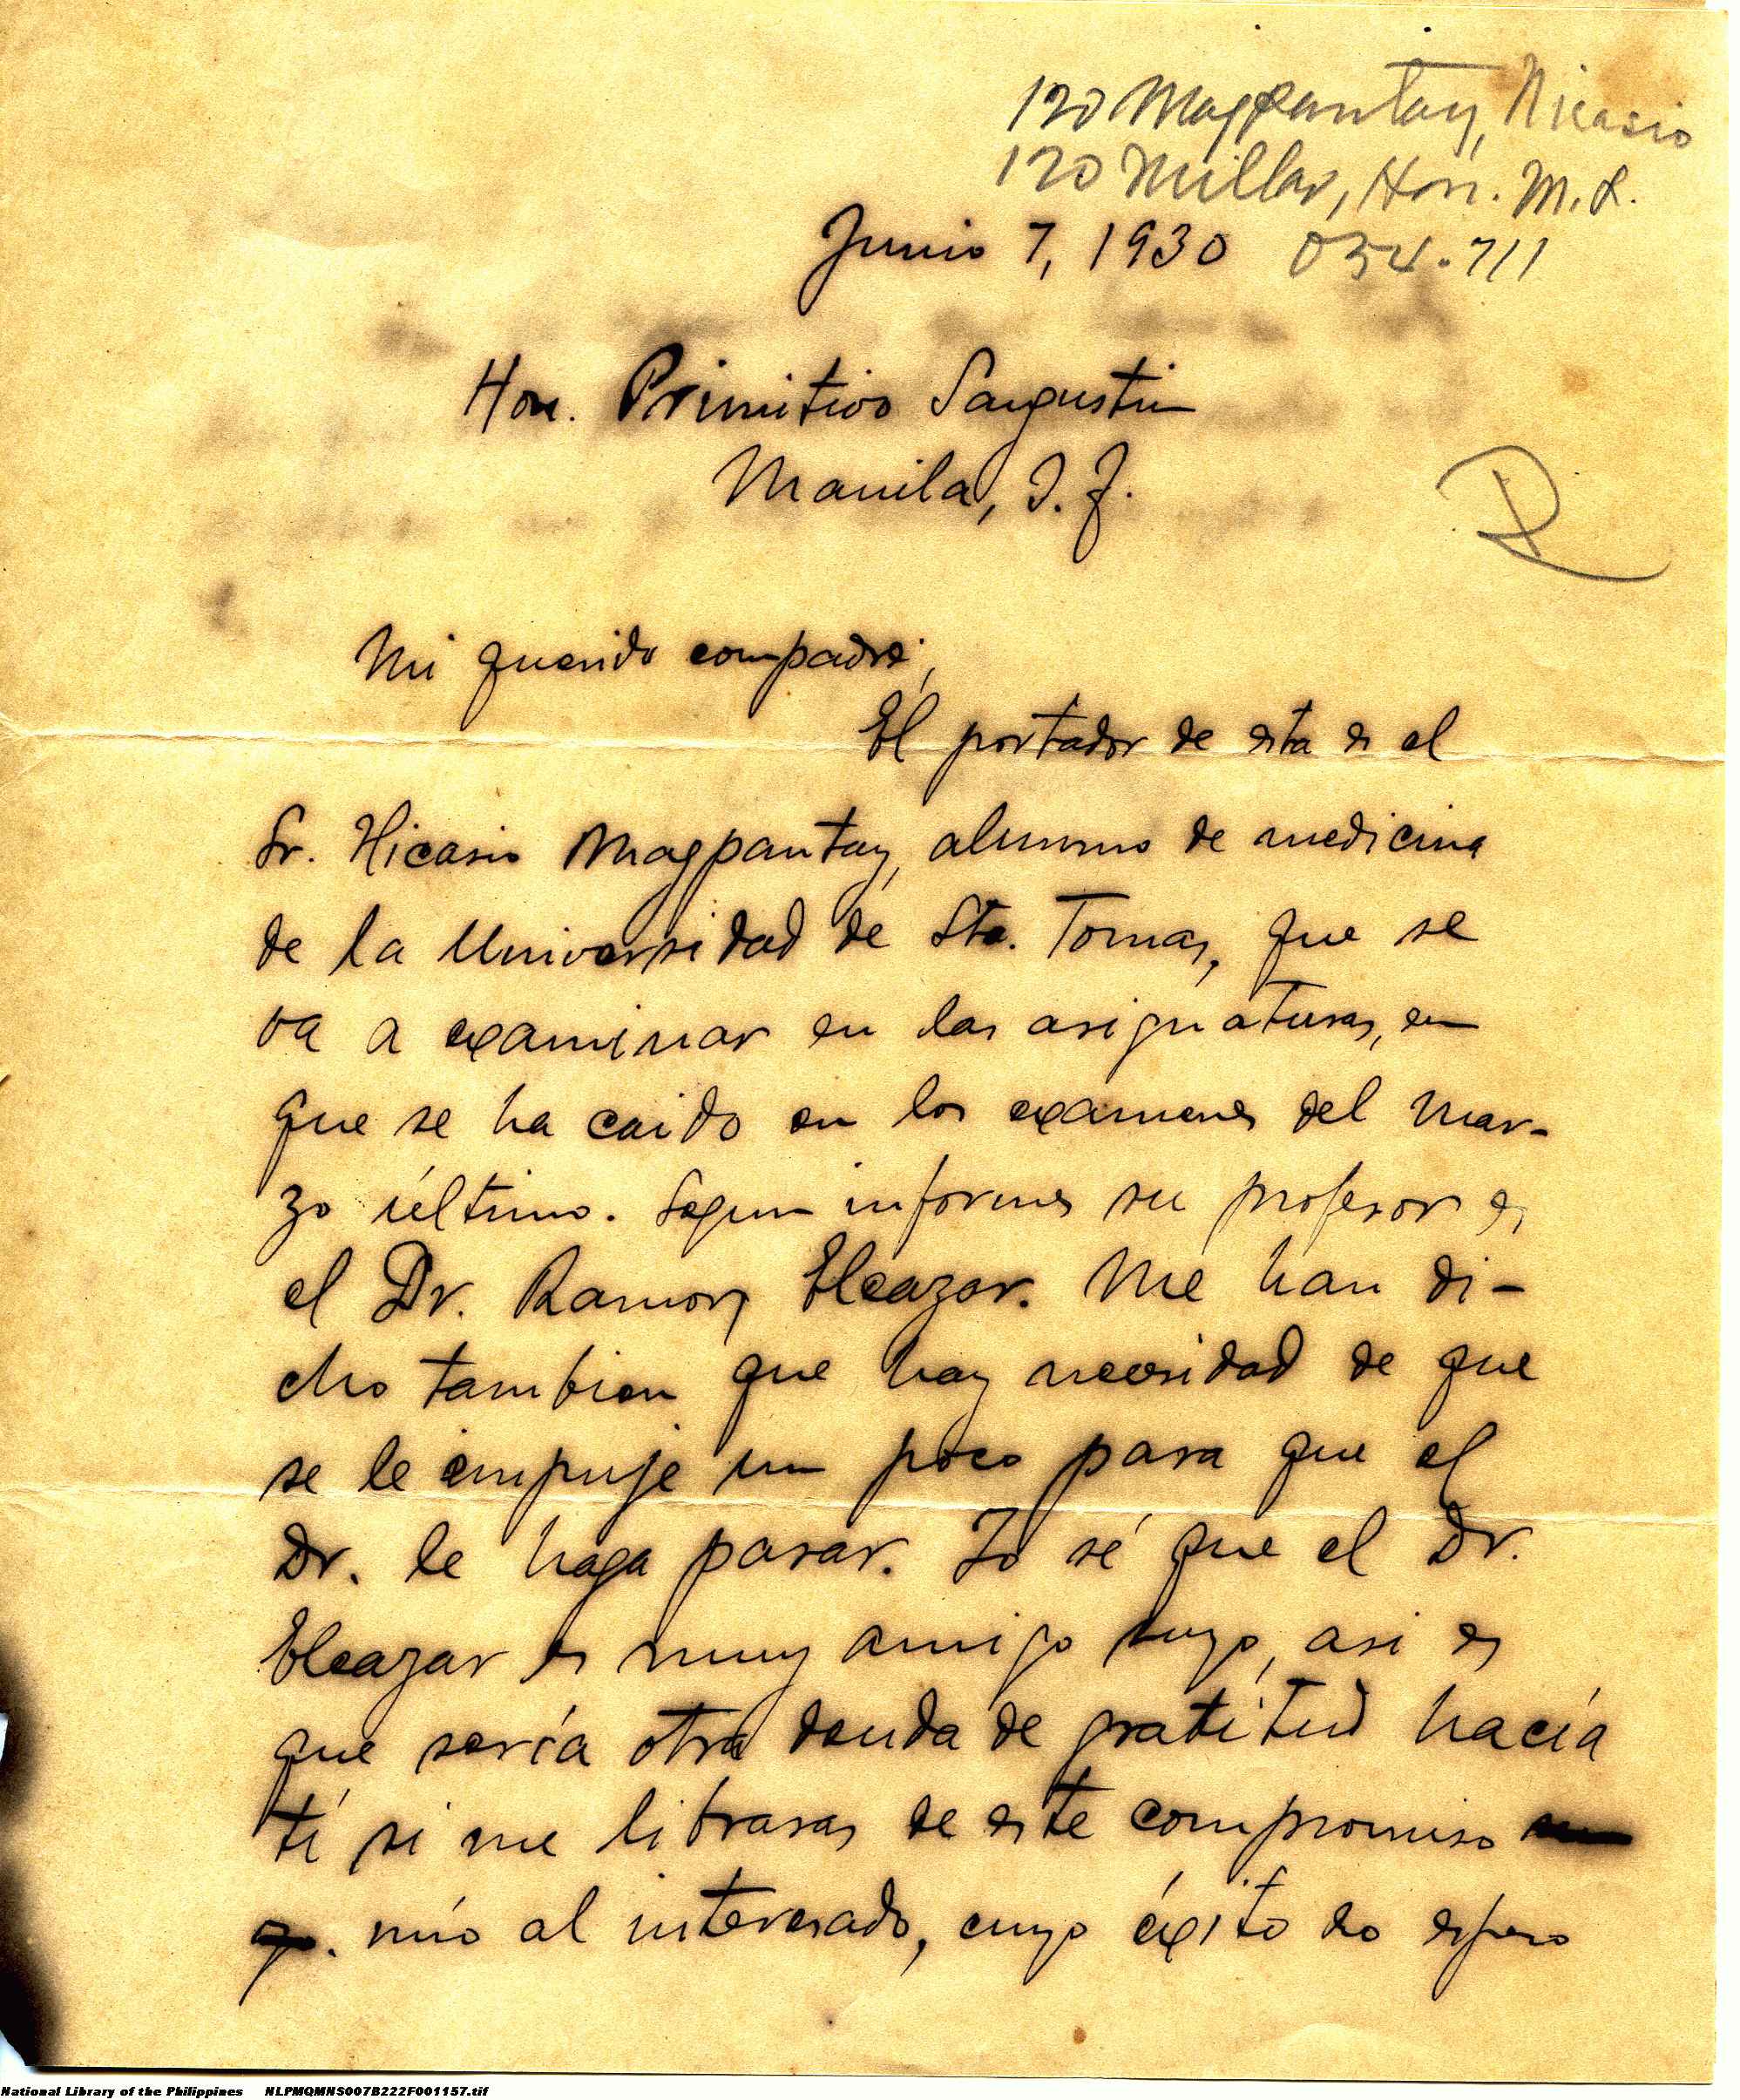 120 Magpantay, Nicasio
120 Millar, Hon. M. L.
Junio 7, 1930 034.711
Hon. Primitivo Sangustin
Manila, I. F.
R
Mi querido compadre,
El portador de esta es el
Sr. Nicasio Magpantay, alumno de medicina
de la Universidad de Sto. Tomas, que se
va a examinar en las asignaturas, en
que se ha caido en los examenes del mar-
zo último. Segun informes su profesor es
el Dr. Ramon Eleazar. Me han di-
cho tambien que hay necesidad de que
se le empuje un poco para que el
Dr. le haga pasar. Yo sé que el Dr.
Eleazar es muy amigo tuyo, asi es
que sería otra deuda de gratitud hacía
tí si me libraras de este compromiso
mío al interesado, cuyo éxito no espero
National Library of the Philippines NLPMQMNS007B222F001157.tif